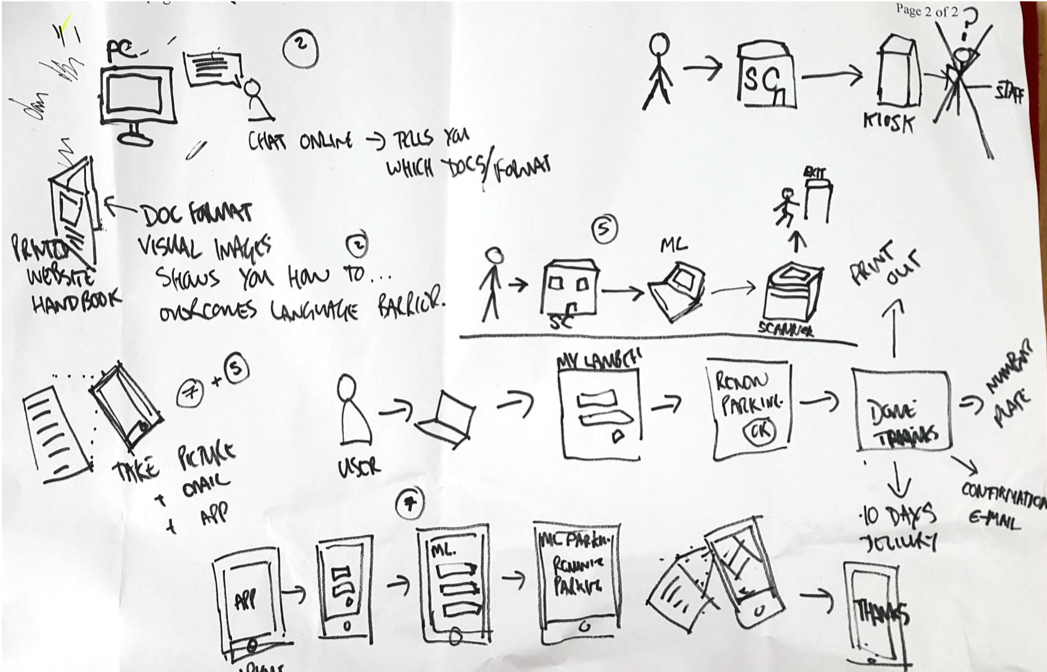 Page 2 of 2
?
PC
2
SC
KIOSK
STAFF
CHAT ONLINE → TELLS YOU
WHICH DOCS/FORMAT
EXIT
PRINTED
WEBSITE
HANDBOOK
DOC FORMAT
VISUAL IMAGES
2
SHOWS YOU HOW TO...
OVERCOMES LANGUAGE BARRIER.
5
SC
ML
SCANNER
PRINT
OUT
7 + 5
TAKE PICTURE
+ EMAIL
+ APP
USER
MY LAMBETH
RENEW
PARKING
OK
DONE
THANKS
NUMBER
PLATE
CONFIRMATION
E-MAIL
10 DAYS
DELIVERY
7
APP
ML.
ML PARKING
PARKING
THANKS